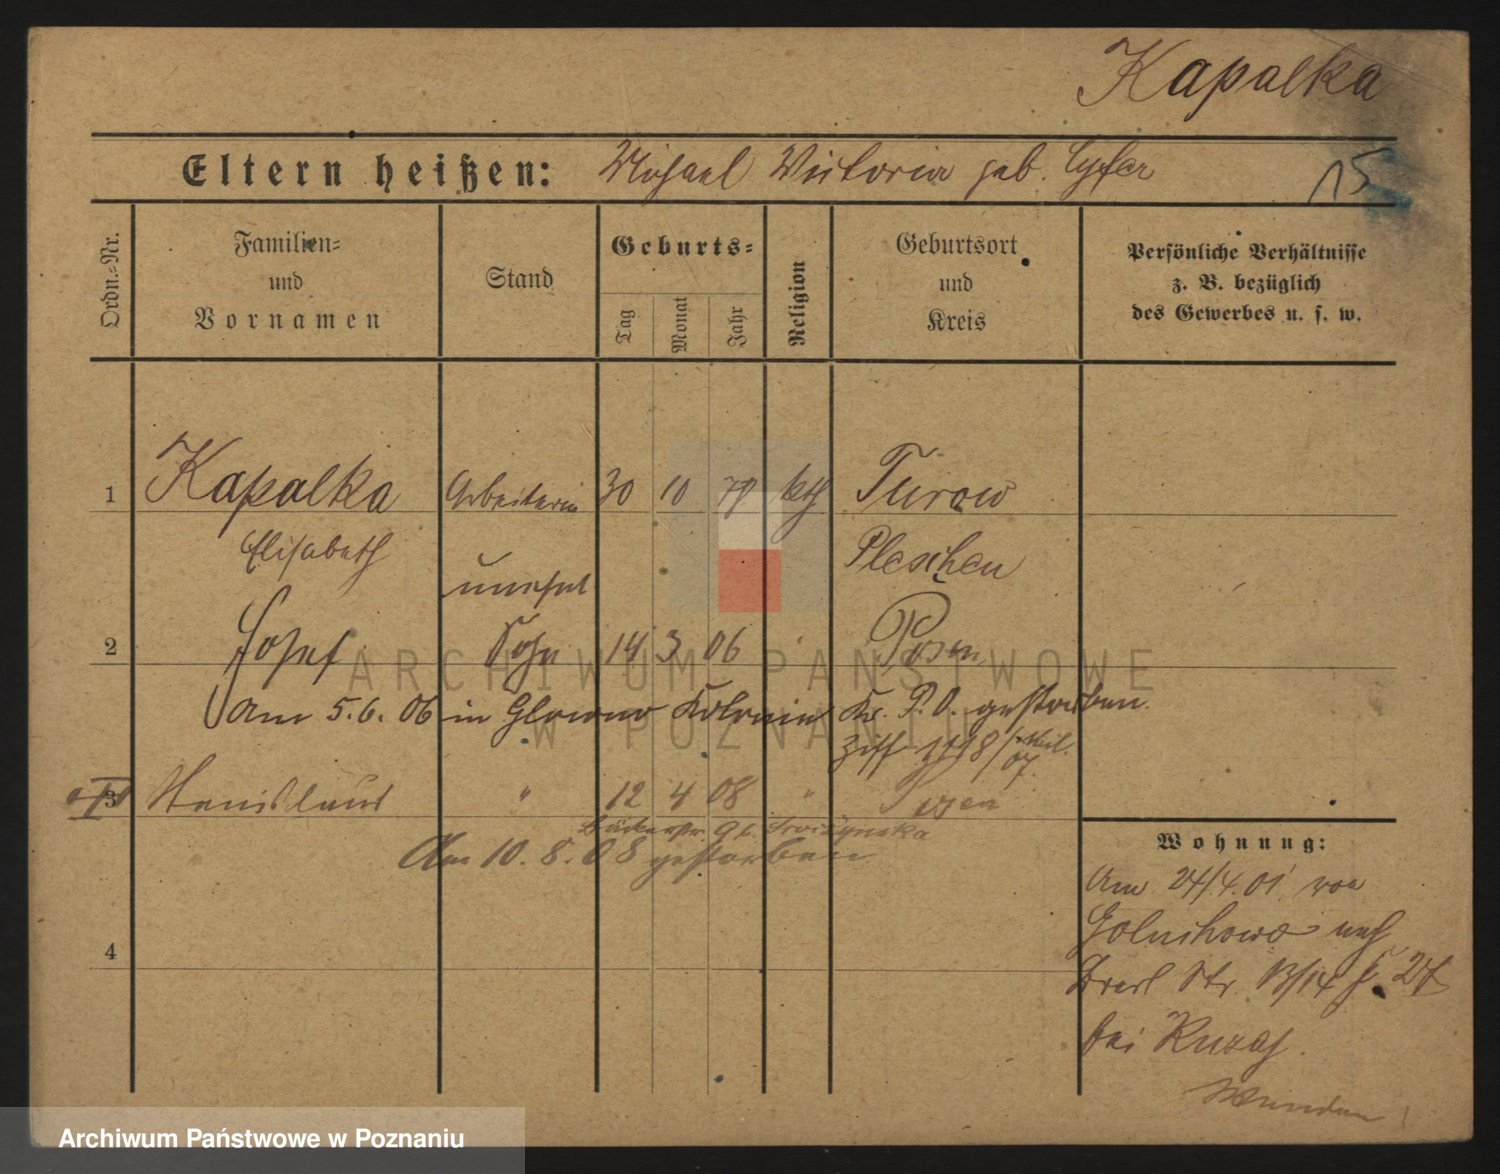 Kapalka
Eltern heißen: Michael Victoria geb. Cyfer
15
Ordn.=Nr.
Familien=
und
Vornamen
Stand
Geburts=
Tag
Monat
Jahr
Religion
Geburtsort
und
Kreis
Persönliche Verhältnisse
z. B. bezüglich
des Gewerbes u. s. w.
1 Kapalka Arbeiterin 30 10 79 kth Turow
Elisabeth Pleschen
unehel
2 Josef Sohn 14 3 06 Posen
Am 5.6.06 in Glowno Kolonie Kr. P. O. gestorben.
3 Stanislaus " 12 4 08 " Posen
Bäckerstr. 9
Am 10.8.08 gestorben
4
Wohnung:
Am 24/4.01 von
Goluchowo nach
Bresl Str 13/14
bei
ARCHIWUM PAŃSTWOWE
W POZNANIU
Archiwum Państwowe w Poznaniu